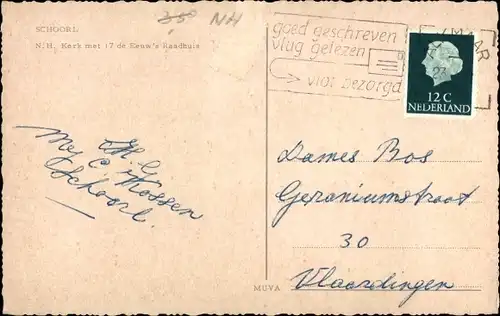 SCHOORL
N.H. Kerk met 17 de Eeuw's Raadhuis
35⁰ NH
goed geschreven
vlug gelezen
vlot bezorgd
12 C
NEDERLAND
H. G.
Mej C. Mossen
Schoorl.
Dames Bos
Geraniumstraat
30
Vlaardingen
MUVA